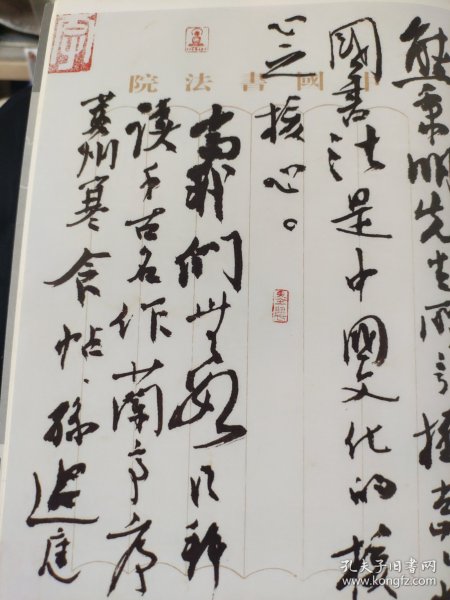 中國書法院
熊秉明先生所言極
國書法是中國文化的核
心之核心。
當我們無數次
讀千古名作蘭亭序
黃州寒食帖、孫過庭
孔夫子旧书网
www.kongfz.com